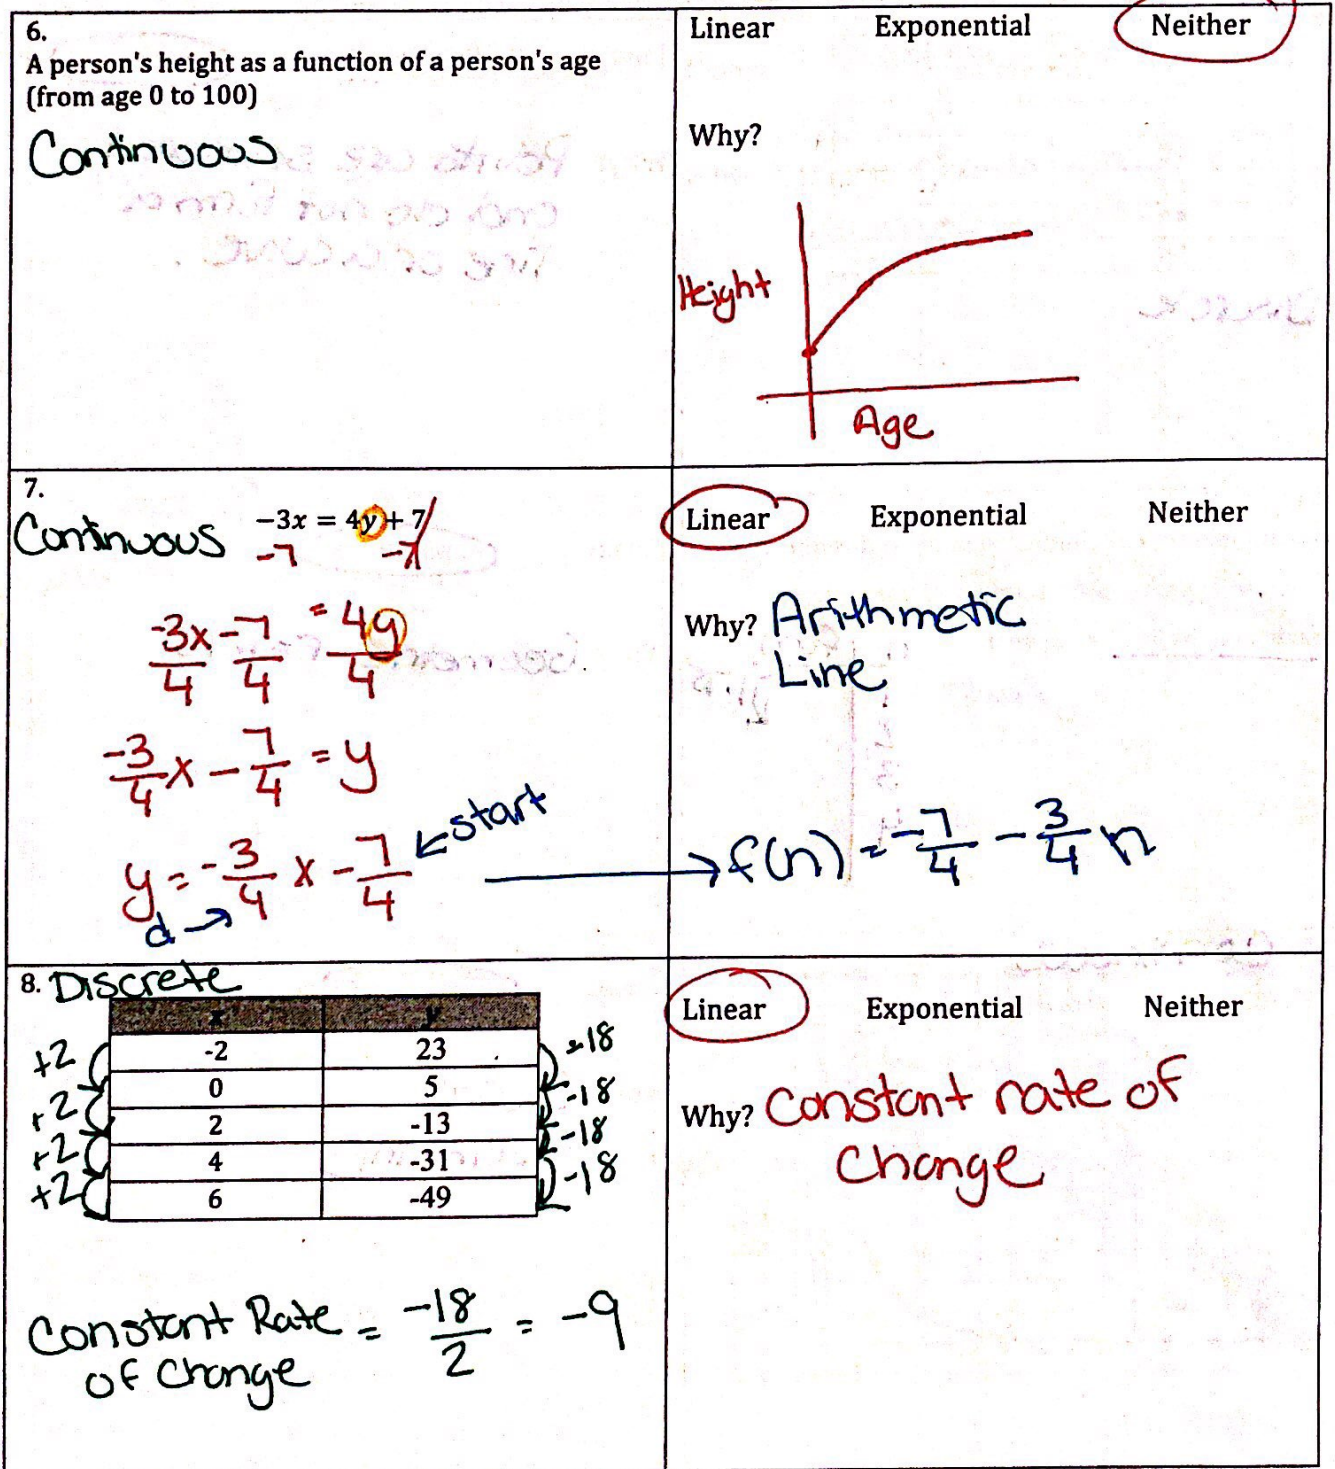 6.
A person's height as a function of a person's age
(from age 0 to 100)
Continuous
Linear Exponential Neither
Why?
Height
Age
7.
Continuous
-3x = 4y + 7
-7 -7
-3x/4 - 7/4 = 4y/4
-3/4 x - 7/4 = y
y = -3/4 x - 7/4 ← start
d →
Linear Exponential Neither
Why? Arithmetic
Line
→ f(n) = -7/4 - 3/4 n
8. Discrete
x y
-2 23
0 5
2 -13
4 -31
6 -49
+2
+2
+2
+2
-18
-18
-18
-18
Constant Rate = -18/2 = -9
of Change
Linear Exponential Neither
Why? Constant rate of
Change